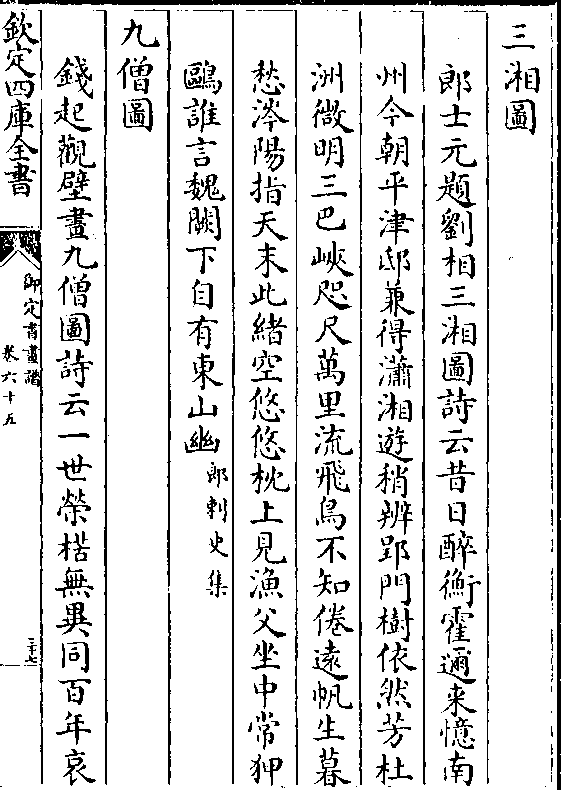 三湘圖
郎士元題劉相三湘圖詩云昔日醉衡霍邇来憶南
州今朝平津邸兼得瀟湘遊稍辨郢門樹依然芳杜
洲微明三巴峽咫尺萬里流飛鳥不知倦遠帆生暮
愁涔陽指天末此緒空悠悠枕上見漁父坐中常狎
鷗誰言魏闕下自有東山幽郎刺史集
九僧圖
錢起觀壁畫九僧圖詩云一世榮楛無異同百年哀
欽定四庫全書
御定書畫譜
卷六十五
三十七